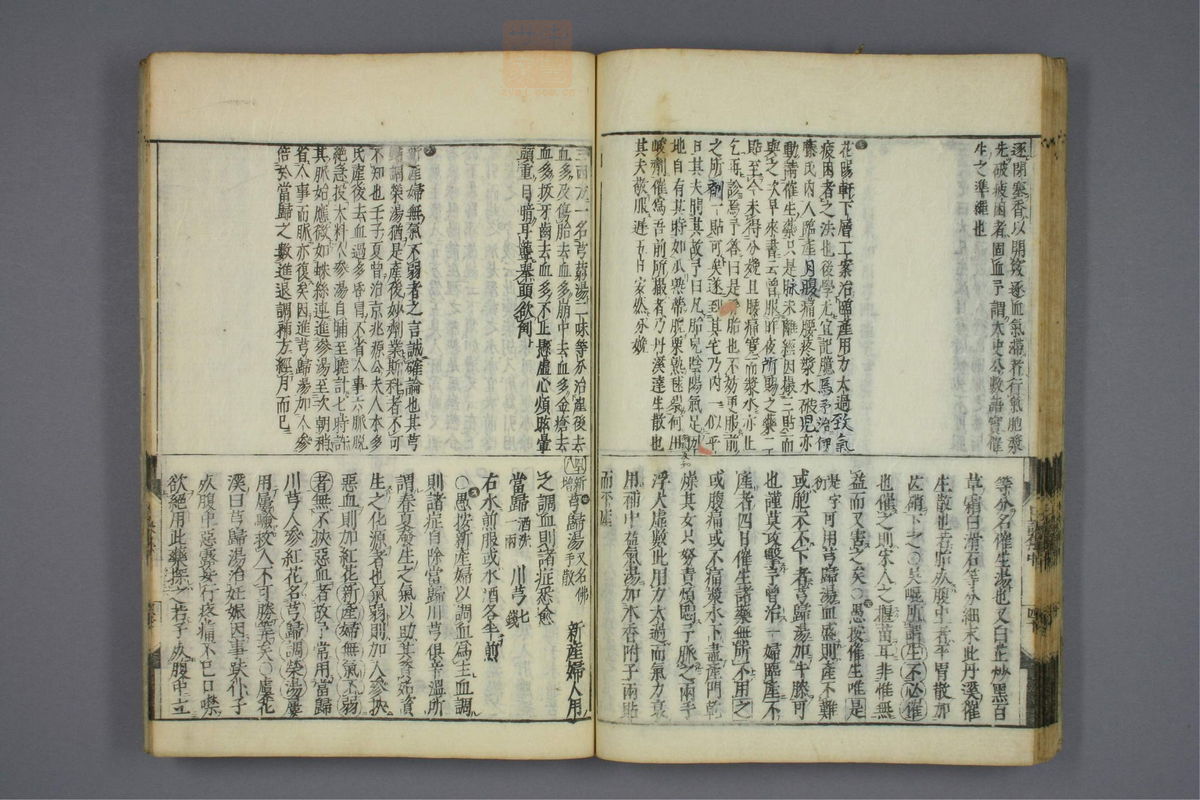 逐閉塞香以開竅逐血氣滯者行氣胞漿
先破疲困者固血予謂太史公數語寔催
生之準繩也
花陽軒下層工案治臨產用力太過致氣
疲困者之法也後學尤宜記臆焉予治伊
藤氏内人臨產月腹痛腰疼漿水破兒亦
動請催生藥只是脉未離經因撮三貼而
與之次早來書云曾服昨夜所賜之藥二
貼至今未得分娩且腰痛寛而漿水亦止
乞再診焉予答曰是
胎也不効更服前
之所劑一貼可矣遂到其宅乃内一似乎
曰其夫問其故予曰凡胎兒陰陽氣足
地自有其時如瓜熟蒂脫栗熟
峻劑催焉吾前所撮者乃丹溪達生散也
其夫敬服遲五日安然分娩
等分名催生湯也又白芷炒黑百
草霜白滑石等分細末此丹溪催
生散也若胎死腹中者平胃散加
朴硝下之〇吳崐所謂生不必催
也催之則宋人之揠苗耳非惟無
益而又害之矣〇愚按催生唯是
是字可用芎歸湯血盛則產不難
或胞衣不下者芎歸湯加牛膝可
也謹莫攻擊予曾治一婦臨產不
產者四日催生諸藥無所不用之
或腹痛或不痛漿水下盡產門乾
燥其女只努責煩悶予脉之兩手
浮大虛數此用力太過而氣力衰
用補中益氣湯加木香附子兩貼
而平產
三兩方一名芎藭湯二味等分治產後去
血多及傷胎去血多崩中去血多金瘡去
血多拔牙齒去血多不止懸虛心煩眩暈
頭重目暗耳聾舉頭欲倒
新產婦無氣不弱者之言誠確論也其芎
歸調榮湯猶是產後妙劑業斯科者不可
不知也壬子夏曾治京兆源公夫人本多
氏產後去血過多昏冒不省人事六脈脱
絶急投大料人參湯自晡至曉計七時許
其脉始應微如蛛絲連進參湯至次朝稍
省人事而脈亦復矣因進芎歸湯加人參
倍於當歸之數進退調補方經月而已
新增芎歸湯又名佛手散
新產婦人用
之調血則諸症悉愈
當歸酒洗一兩
川芎七錢
右水煎服或水酒各半煎
〇愚按新產婦以調血為主血調
則諸症自除當歸川芎俱辛溫所
謂春夏發生之氣以助其養始資
生之化源者也氣弱則加人參挾
惡血則加紅花新產婦無氣不弱
者無不挾惡血者故予常用當歸
川芎人參紅花名芎歸調榮湯屢
用屢驗救人不可勝筭矣〇虛花
溪曰芎歸湯治妊娠因事跌仆子
死腹中惡露妄行疼痛不已口噤
欲絶用此藥探之若子死腹中立